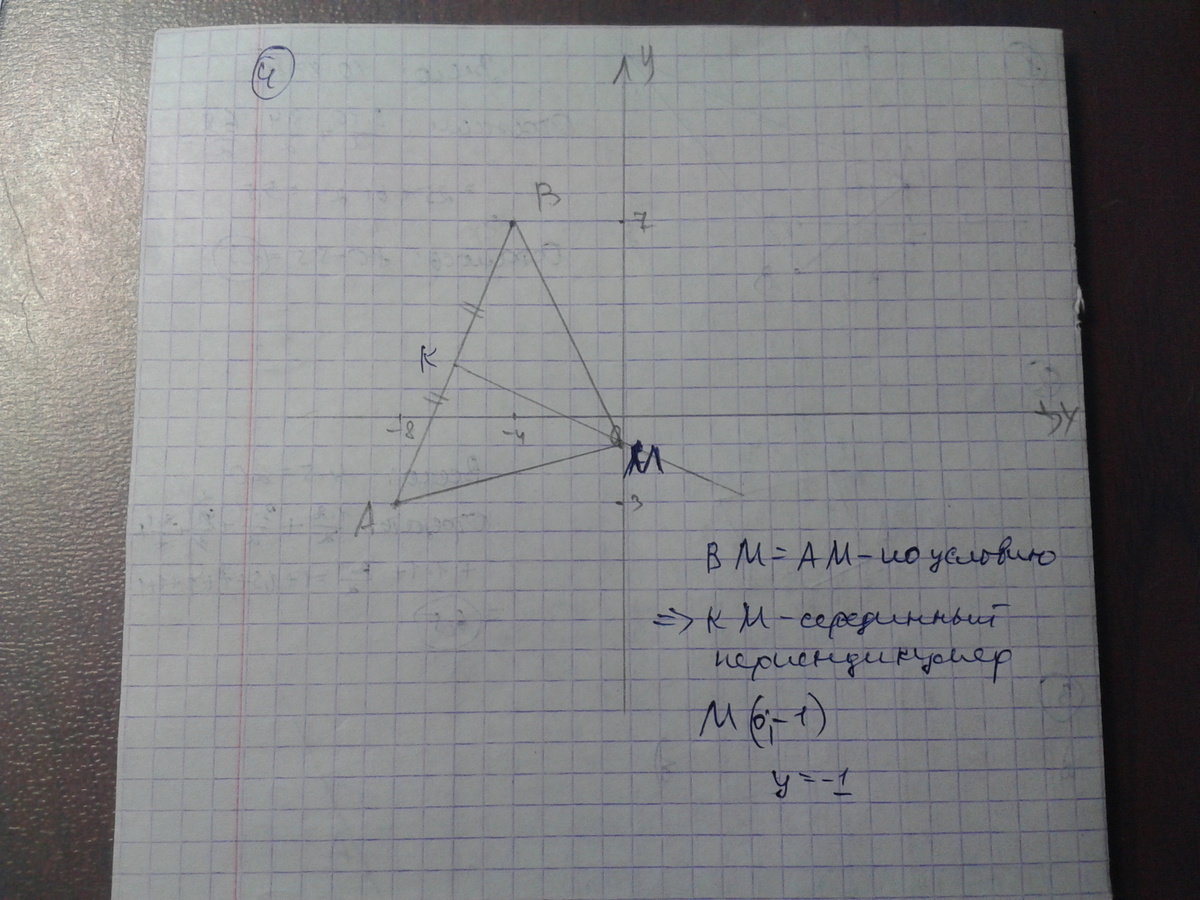 4
y
B
7
K
-8
-4
M
A
-3
BM = AM - по условию
=> KM - серединный
перпендикуляр
M(0;-1)
y = -1